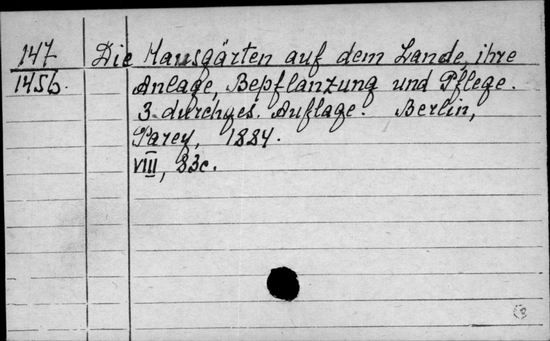 147 Die Hausgärten auf dem Lande, ihre
1456. Anlage, Bepflanzung und Pflege.
3. durchges. Auflage. Berlin,
Parey, 1884.
VIII, 83c.